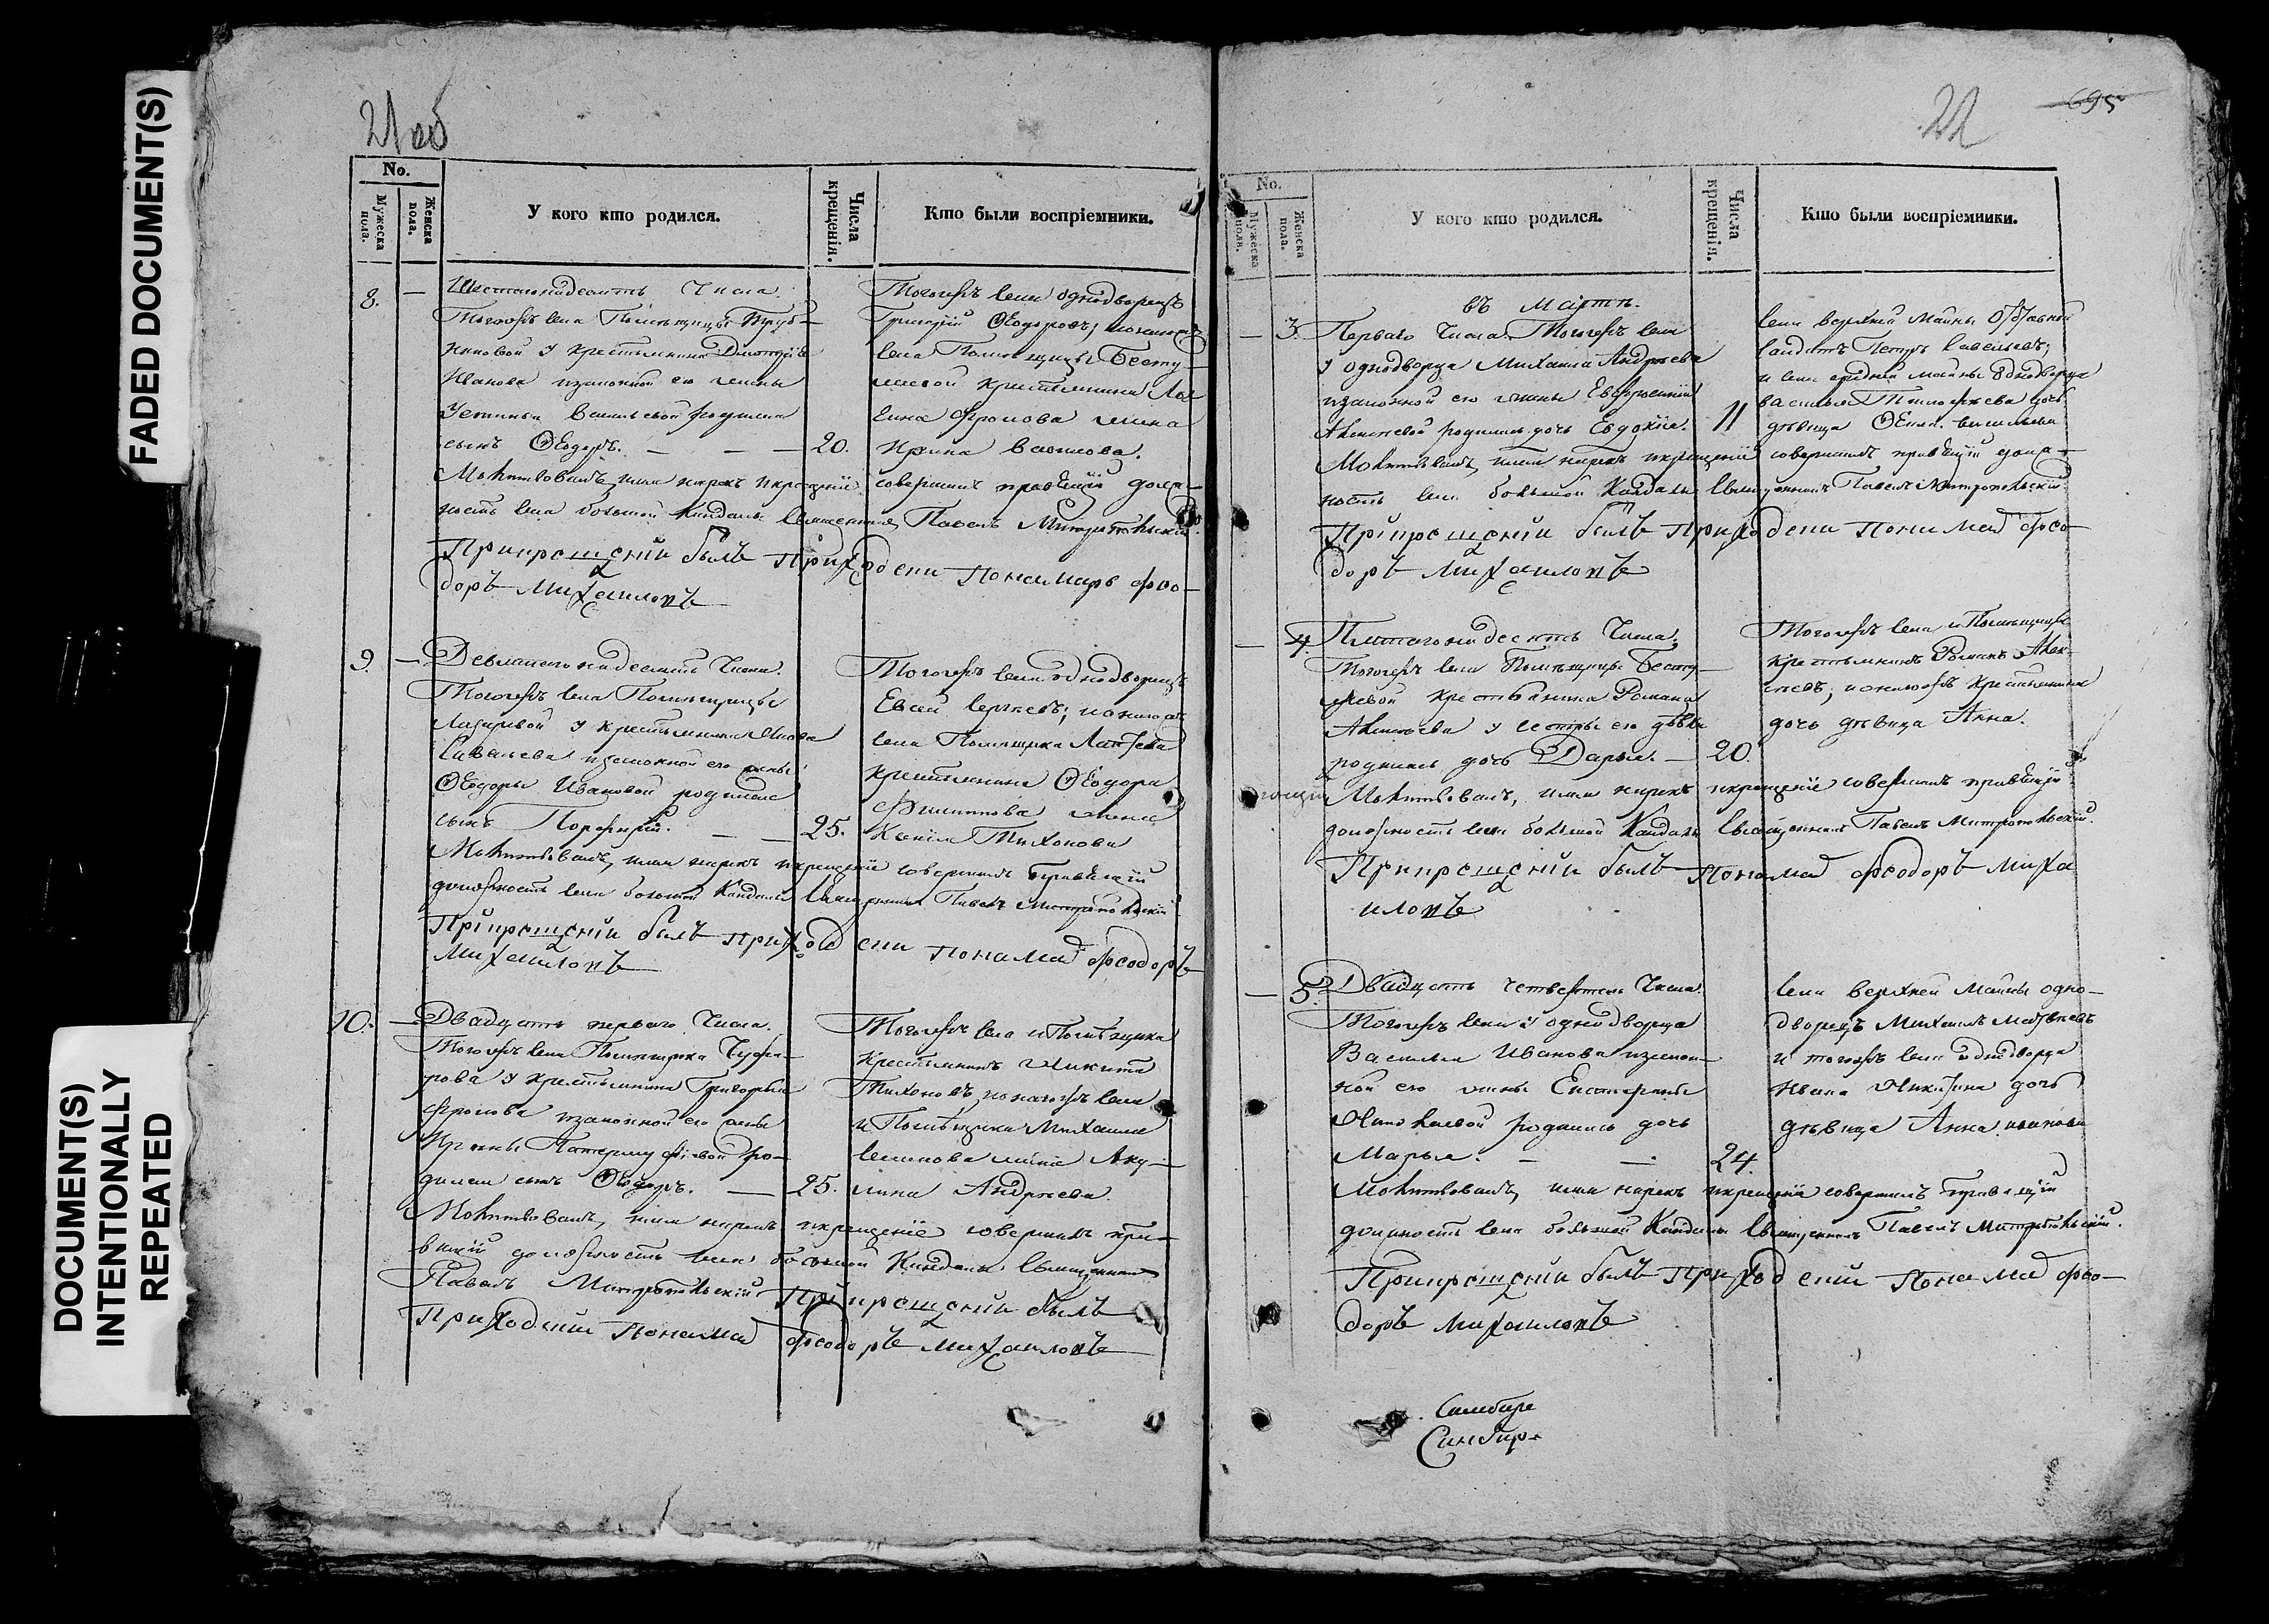 FADED DOCUMENT(S)
DOCUMENT(S)
INTENTIONALLY
REPEATED
21 об
No.
Мужеска пола.
Женска пола.
У кого кто родился.
Числа крещенія.
Кто были воспріемники.
8. — Шестагонадесять Числа.
Тогожъ села Помѣщицы
у крестьянина Дмитрія
Иванова изаконной его жены
Устиньи Васильевой родился
сынъ Ѳеодоръ. — — — 20.
Тогожъ села однодворецъ
Григорій Ѳеодоровъ;
села Помѣщицы Бесту-
жевой крестьянина
Фролова жена
Ирина
Молитвовалъ, имя нарекъ икрещеніе совершилъ правящій долж-
ность села большой Кандалы Священникъ Павелъ Митропольскій.
При крещеніи былъ приходскій Понамарь Фео-
доръ Михаиловъ
9. — Девятагонадесять Числа.
Тогожъ села Помѣщицы
Лазаревой у крестьянина
Савельева изаконной его жены
Ѳеодоры Ивановой родился
сынъ Порфирій. — — 25.
Тогожъ села однодворецъ
Евсей Сергѣевъ;
села Помѣщика
крестьянина Ѳеодора
Филиппова жена
Ксенія Тихонова
Молитвовалъ, имя нарекъ икрещеніе совершилъ правящій
должность села большой Кандалы Священникъ Павелъ Митропольскій
При крещеніи былъ приходскій понамарь Феодоръ
Михаиловъ
10. — Двадцать перваго Числа.
Тогожъ села Помѣщика
у крестьянина Григорья
Фролова изаконной его жены
Ирины ро-
дился сынъ Ѳеодоръ. — 25.
Тогожъ села и Помѣщика
Крестьянинъ Никита
Тихоновъ, села
и Помѣщика Михаила
Семенова жена Аку-
лина Андреева.
Молитвовалъ, имя нарекъ икрещеніе совершилъ пра-
вящій должность села большой Кандалы Священникъ
Павелъ Митропольскій При крещеніи былъ
Приходскій Понамарь Феодоръ Михаиловъ
22
695
No.
Мужеска пола.
Женска пола.
У кого кто родился.
Числа крещенія.
Кто были воспріемники.
въ Мартѣ.
— 3. Перваго Числа. Тогожъ села
у однодворца Михаила Андреева
изаконной его жены Евфросиніи
Алексѣевой родилась дочь Евдокія. 11
села верхней Майны
Петръ Савельевъ;
и села средней майны Однодворца
Василья Тимофеева дочь
дѣвица Васильева
Молитвовалъ, имя нарекъ икрещеніе совершилъ правящій долж-
ность села большой Кандалы Священникъ Павелъ Митропольскій.
При крещеніи былъ Приходскій Понамарь Фео-
доръ Михаиловъ
— 4. Пятагонадесять Числа.
Тогожъ села Помѣщицы Бесту-
жевой крестьянина Романа
Алексѣева у сестры его дѣвки
родилась дочь Дарья. — 20.
Тогожъ села и Помѣщицы
крестьянинъ Романъ Алек-
сѣевъ; крестьянина
дочь дѣвица Анна.
Молитвовалъ, имя нарекъ икрещеніе совершилъ правящій
должность села большой Кандалы Священникъ Павелъ Митропольскій.
При крещеніи былъ Понамарь Феодоръ Миха
иловъ
— 5. Двадцать четвертаго Числа.
Тогожъ села у однодворца
Василья Иванова изакон-
ной его жены Екатерины
родилась дочь
Марья. — — 24.
села верхней Майны одно-
дворецъ Михаилъ Матвѣевъ
и тогожъ села однодворца
Ивана Никитина дочь
дѣвица Анна Иванова
Молитвовалъ, имя нарекъ икрещеніе совершилъ правящій
должность села большой Кандалы Священникъ Павелъ Митропольскій.
При крещеніи былъ приходскій Понамарь Фео-
доръ Михаиловъ
Симбир
Синбир